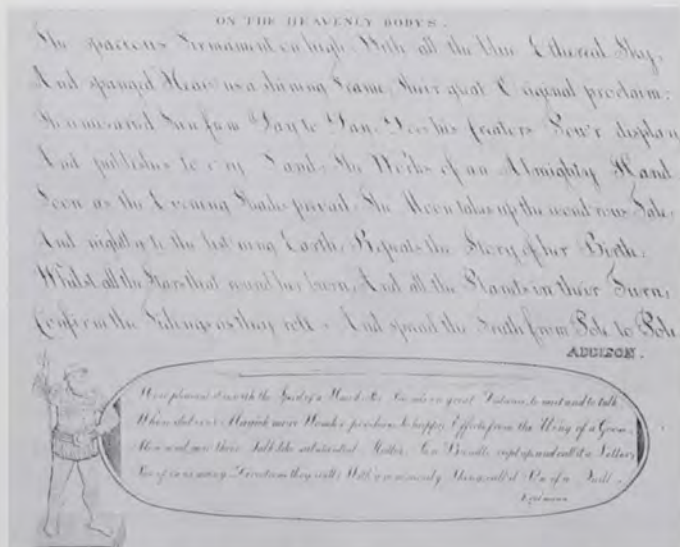 ON THE HEAVENLY BODYS.
The spacious Firmament on high, With all the blue Ethereal Sky,
And spangled Heav'ns a shining Frame, Their great Original proclaim:
Th'unwearied Sun from Day to Day, Does his Creators Pow'r display
And publishes to ev'ry Land, The Works of an Almighty Hand
Soon as the Evening Shades prevail, The Moon takes up the wond'rous Tale,
And nightly to the list'ning Earth, Repeats the Story of her Birth:
Whilst all the Stars that round her burn, And all the Planets in their Turn,
Confirm the Tidings as they roll, And spread the Truth from Pole to Pole
ADDISON.
How pleasant it with the of a Hand great Distance, to meet and to talk
Magick more Wonder produce happy Effects from the Wing of a Goose
Men and Talk like substantial Matter, up and call it a Letter
many they will, With a call'd a Pen of a Quill.